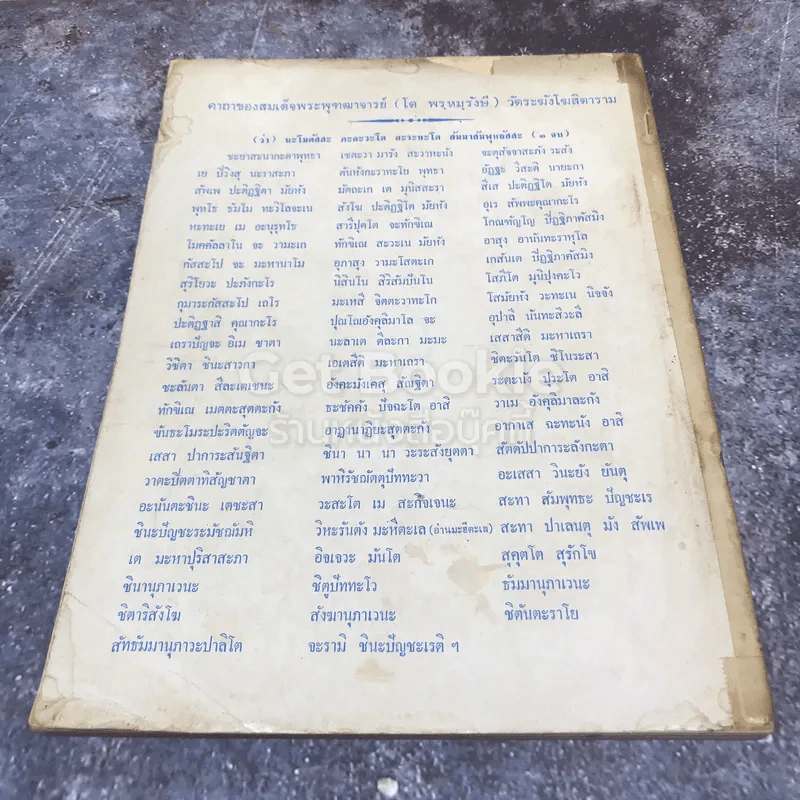 คาถาของสมเด็จพระพุฒาจารย์ (โต พรฺหมฺรังษี) วัดระฆังโฆสิตาราม
(ว่า) นะโมตัสสะ ภะคะวะโต อะระหะโต สัมมาสัมพุทธัสสะ (๓ จบ)
ชะยาสะนากะตาพุทธา เชตะวา มารัง สะวาหะนัง จะตุสัจจาสะภัง ระสัง
เย ปิวิงสุ นะราสะภา ตันหังกะราทะโย พุทธา อัฏฐะ วีสะติ นายะกา
สัพเพ ปะติฏฐิตา มัยหัง มัตถะเก เต มุนิสสะรา สีเส ปะติฏฐิโต มัยหัง
พุทโธ ธัมโม ทะวิโลจะเน สังโฆ ปะติฏฐิโต มัยหัง อุเร สัพพะคุณากะโร
หะทะเย เม อะนุรุทโธ สารีปุตโต จะทักขิเณ โกณฑัญโญ ปิฏฐิภาคัสมิง
โมคคัลลาโน จะ วามะเก ทักขิเณ สะวะเน มัยหัง อาสุง อานันทะราหุโล
คัสสะโป จะ มะหานาโม อุภาสุง วามะโสตะเก เกสันเต ปิฏฐิภาคัสมิง
สุริโยวะ ปะภังกะโร นิสินโน สิริสัมปันโน โสภิโต มุนิปุงคะโว
กุมาระกัสสะโป เถโร มะเหสี จิตตะวาทะโก โสมัยหัง วะทะเน นิจจัง
ปะติฏฐาสิ คุณากะโร ปุณโณอังคุลิมาโล จะ อุปาลี นันทะสีวะลี
เถราปัญจะ อิเม ชาตา นะลาเต ติละกา มะมะ เสสาสีติ มะหาเถรา
วิชิตา ชินะสาวะกา เอเตสีติ มะหาเถรา ชิตะวันโต ชิโนระสา
ชะลันตา สีละเตเชนะ อังคะมังเคสุ สัณฐิตา ระตะนัง ปุระโต อาสิ
ทักขิเณ เมตตะสุตตะกัง ธะชัคคัง ปัจฉะโต อาสิ วาเม อังคุลิมาละกัง
ขันธะโมระปะริตตัญจะ อาฏานาฏิยะสุตตะกัง อากาเส ฉะทะนัง อาสิ
เสสา ปาการะสัณฐิตา ชินา นา นา วะระสังยุตตา สัตตัปปาการะลังกะตา
วาตะปิตตาทิสัญชาตา พาหิรัชณัตตุปัททะวา อะเสสา วินะยัง ยันตุ
อะนันตะชินะ เตชะสา วะสะโต เม สะกิจเจนะ สะทา สัมพุทธะ ปัญชะเร
ชินะปัญชะระมัชฌัมหิ วิหะรันตัง มะหีตะเล (อ่านมะฮีตะเล) สะทา ปาเลนตุ มัง สัพเพ
เต มะหาปุริสาสะภา อิจเจวะ มันโต สุคุตโต สุรักโข
ชินานุภาเวนะ ชิตูปัททะโว ธัมมานุภาเวนะ
ชิตาริสังโฆ สังฆานุภาเวนะ ชิตันตะราโย
สัทธัมมานุภาวะปาลิโต จะรามิ ชินะปัญชะเรติ ฯ
Get Bookie